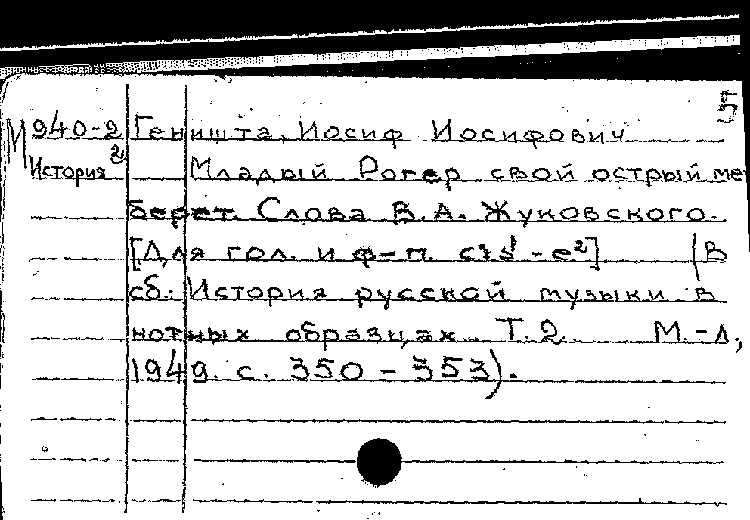 5
М 940-2 Геништа, Иосиф Иосифович
История 2 Младый Рогер свой острый ме
берет. Слова В.А. Жуковского.
[Для гол. и ф-п. cis¹ - e²] (В
сб.: История русской музыки в
нотных образцах Т.2 М.-Л,
1949. с. 350 - 353).